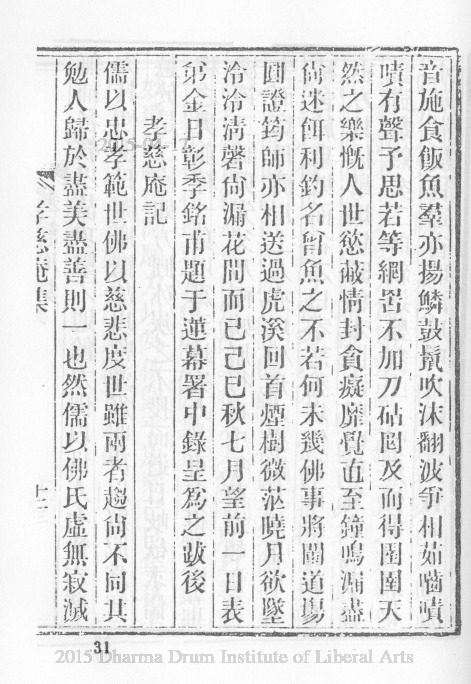 音施食飯魚羣亦揚鱗鼓鬣吹沫翻波爭相茹嚙嘖
嘖有聲予思若等網罟不加刀砧罔及而得圉圉天
然之樂慨人世慾蔽情封貪癡靡覺直至鐘鳴漏盡
尙迷餌利釣名曾魚之不若何未幾佛事將闌道場
圓證筠師亦相送過虎溪回首煙樹微茫曉月欲墜
泠泠淸磬尙漏花間而已己巳秋七月望前一日表
弟金日彰季銘甫題于蓮幕署中錄呈爲之跋後
孝慈庵記
儒以忠孝範世佛以慈悲度世雖兩者趨尙不同其
勉人歸於盡美盡善則一也然儒以佛氏虛無寂滅
孝慈庵集
十二
31
2015 Dharma Drum Institute of Liberal Arts